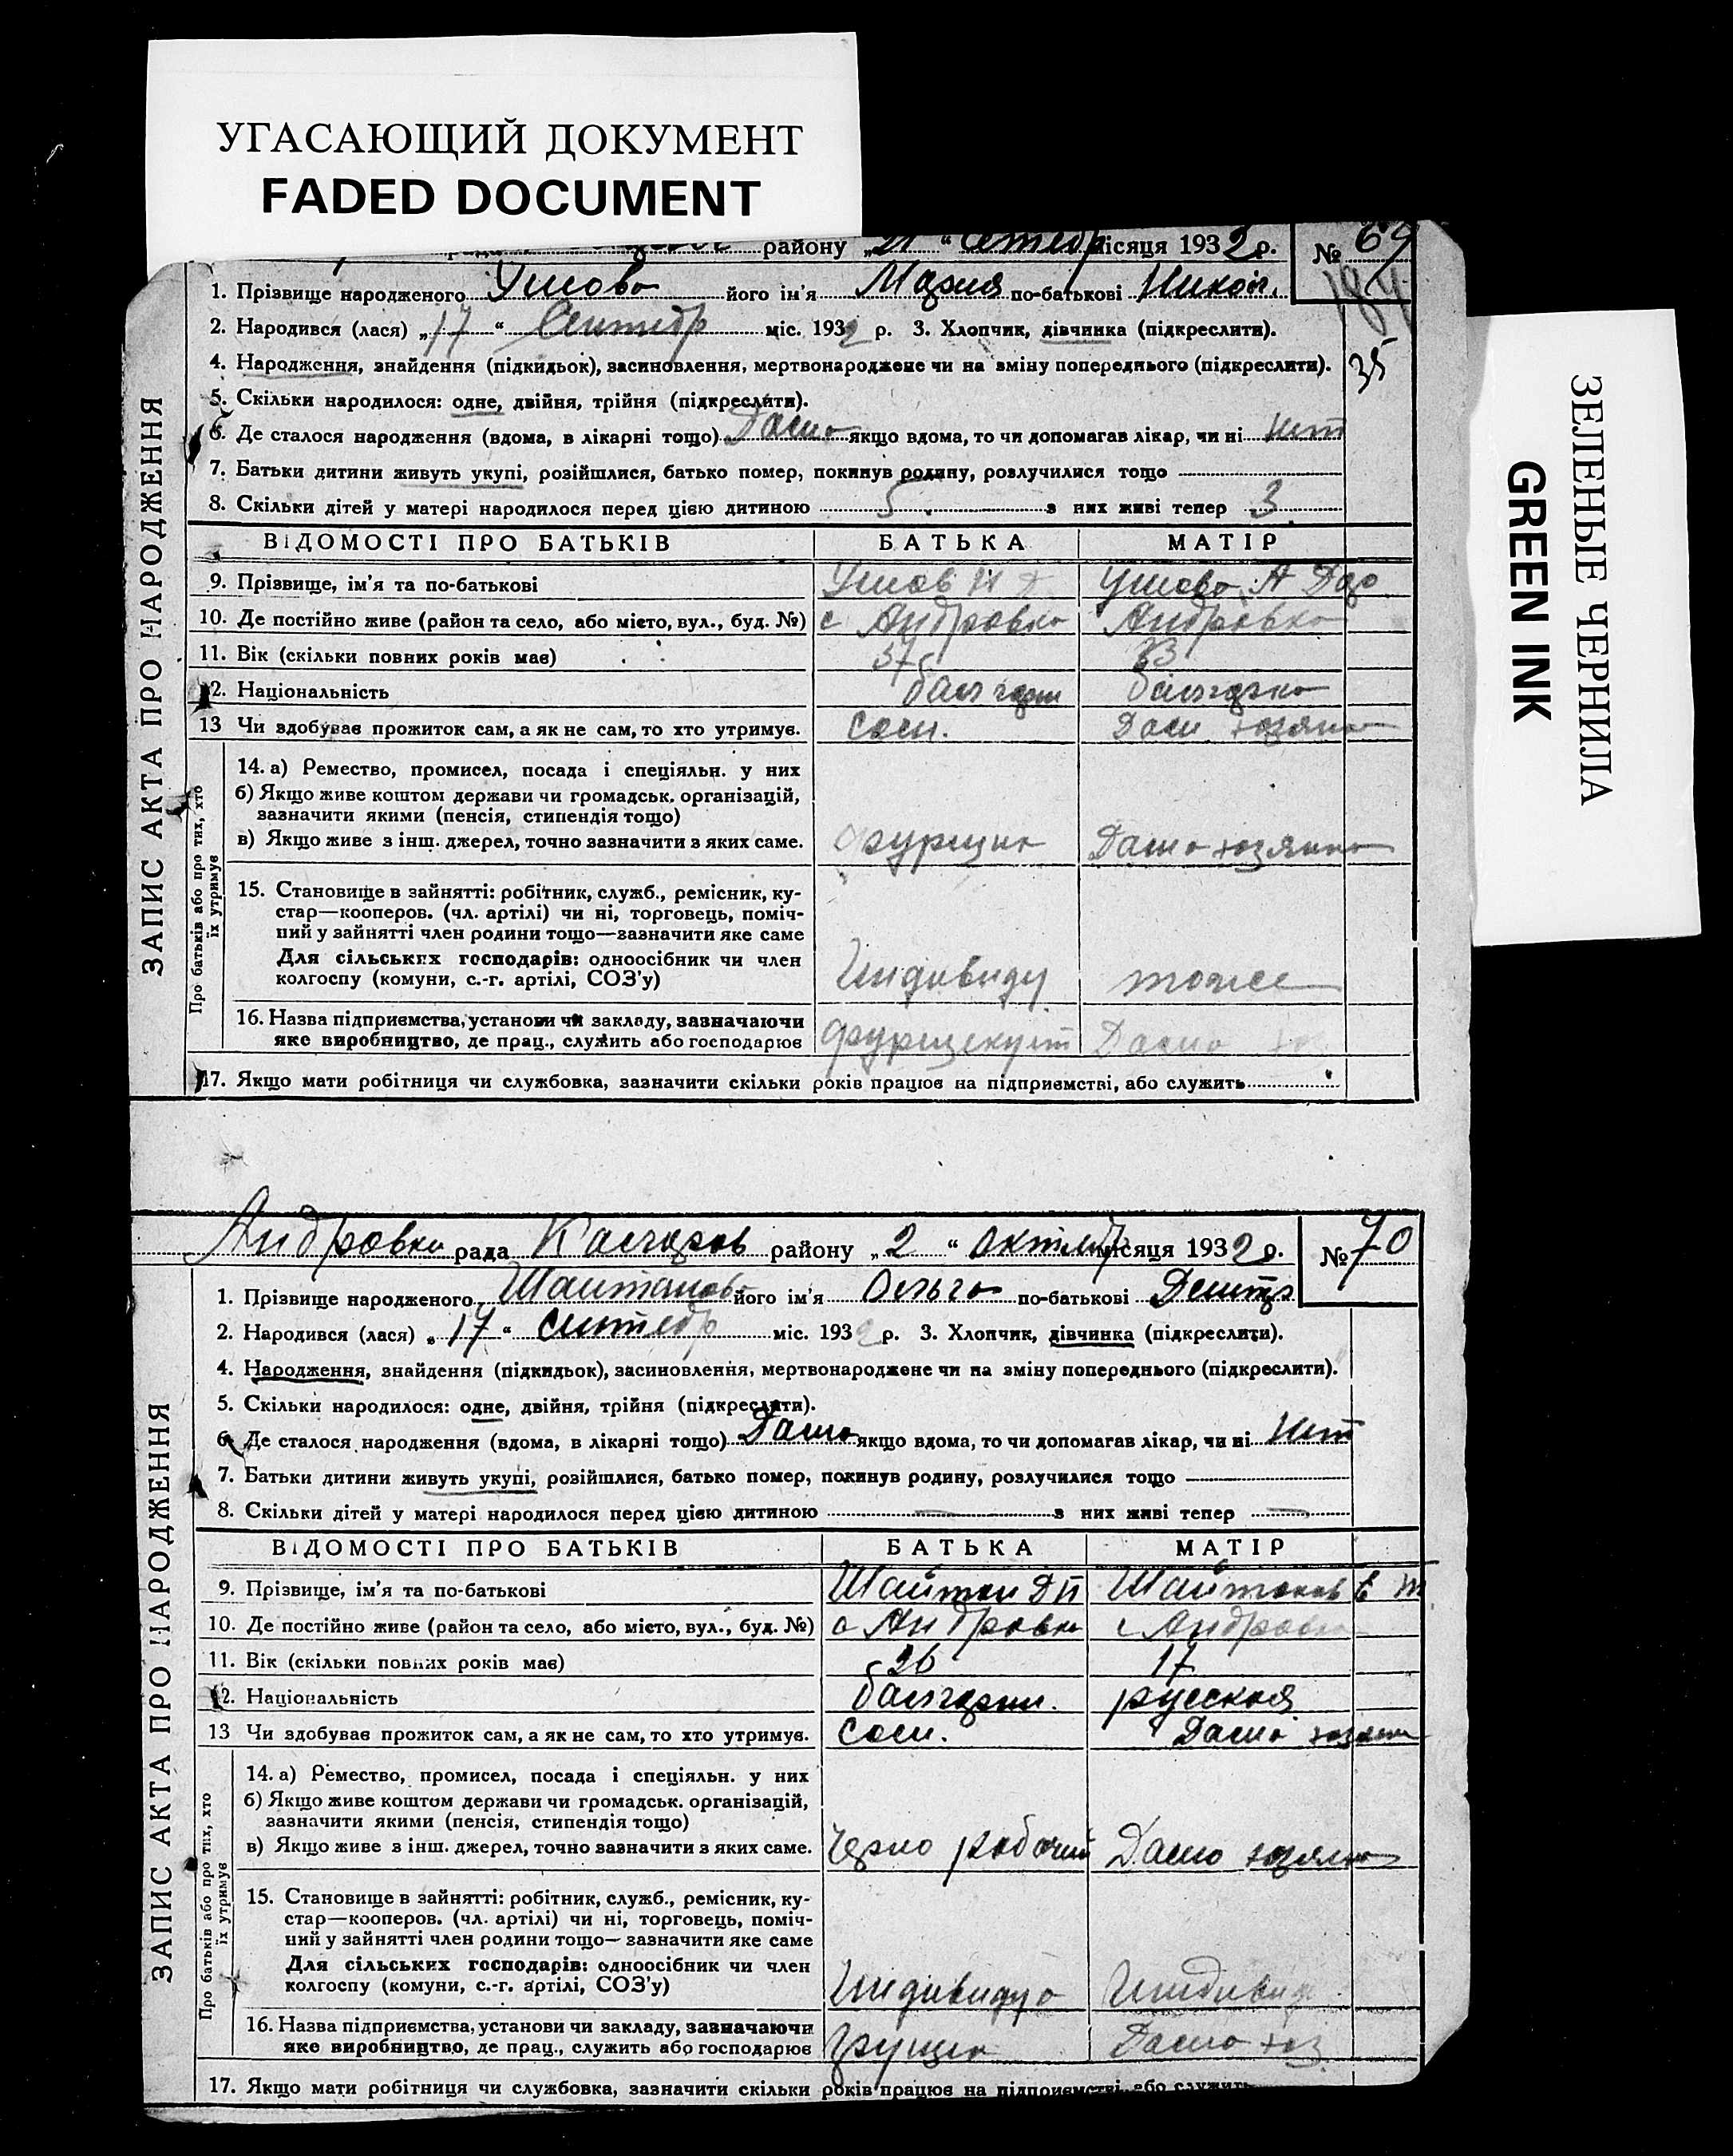 УГАСАЮЩИЙ ДОКУМЕНТ
FADED DOCUMENT
ЗЕЛЕНЫЕ ЧЕРНИЛА
GREEN INK
району „21“ місяця 1932 р. № 69
1. Прізвище народженого його ім'я Мария по-батькові Никол.
2. Народився (лася) „17“ міс. 1932 р. 3. Хлопчик, дівчинка (підкреслити).
4. Народження, знайдення (підкидьок), засиновлення, мертвонароджене чи на зміну попереднього (підкреслити). 35
5. Скільки народилося: одне, двійня, трійня (підкреслити).
6. Де сталося народження (вдома, в лікарні тощо) Дома якщо вдома, то чи допомагав лікар, чи ні нет
7. Батьки дитини живуть укупі, розійшлися, батько помер, покинув родину, розлучилися тощо
8. Скільки дітей у матері народилося перед цією дитиною 5 з них живі тепер 3
ЗАПИС АКТА ПРО НАРОДЖЕННЯ
ВІДОМОСТІ ПРО БАТЬКІВ БАТЬКА МАТІР
9. Прізвище, ім'я та по-батькові
10. Де постійно живе (район та село, або місто, вул., буд. №) с Андровка Андровка
11. Вік (скільки повних років має) 37 33
12. Національність болгарин болгарка
13 Чи здобував прожиток сам, а як не сам, то хто утримує. Сам. Дом. хозяйка
Про батьків або про тих, хто їх утримує
14. а) Ремество, промисел, посада і спеціяльн. у них
б) Якщо живе коштом держави чи громадськ. організацій,
зазначити якими (пенсія, стипендія тощо)
в) Якщо живе з інш. джерел, точно зазначити з яких саме. Дома хозяйка
15. Становище в зайнятті: робітник, служб., ремісник, ку-
стар—кооперов. (чл. артілі) чи ні, торговець, поміч-
ний у зайнятті член родини тощо—зазначити яке саме
Для сільських господарів: одноосібник чи член
колгоспу (комуни, с.-г. артілі, СОЗ'у) Индивиду тоже
16. Назва підприємства, установи чи закладу, зазначаючи
яке виробництво, де прац., служить або господарює Дома
17. Якщо мати робітниця чи службовка, зазначити скільки років працює на підприємстві, або служить
Андровка рада району „2“ октября місяця 1932 р. № 70
1. Прізвище народженого Шайтанова його ім'я Ольга по-батькові
2. Народився (лася) „17“ сентябр міс. 1932 р. 3. Хлопчик, дівчинка (підкреслити).
4. Народження, знайдення (підкидьок), засиновлення, мертвонароджене чи на зміну попереднього (підкреслити).
5. Скільки народилося: одне, двійня, трійня (підкреслити).
6. Де сталося народження (вдома, в лікарні тощо) Дома якщо вдома, то чи допомагав лікар, чи ні Нет
7. Батьки дитини живуть укупі, розійшлися, батько помер, покинув родину, розлучилися тощо
8. Скільки дітей у матері народилося перед цією дитиною — з них живі тепер —
ЗАПИС АКТА ПРО НАРОДЖЕННЯ
ВІДОМОСТІ ПРО БАТЬКІВ БАТЬКА МАТІР
9. Прізвище, ім'я та по-батькові Шайтан Д П Шайтанов
10. Де постійно живе (район та село, або місто, вул., буд. №) с Андровка с Андровка
11. Вік (скільки повних років має) 26 17
12. Національність болгарин. русская
13 Чи здобував прожиток сам, а як не сам, то хто утримує. Сам. Дома хозяйк
Про батьків або про тих, хто їх утримує
14. а) Ремество, промисел, посада і спеціяльн. у них
б) Якщо живе коштом держави чи громадськ. організацій,
зазначити якими (пенсія, стипендія тощо)
в) Якщо живе з інш. джерел, точно зазначити з яких саме. Черно рабочий Дома хозяйка
15. Становище в зайнятті: робітник, служб., ремісник, ку-
стар—кооперов. (чл. артілі) чи ні, торговець, поміч-
ний у зайнятті член родини тощо—зазначити яке саме
Для сільських господарів: одноосібник чи член
колгоспу (комуни, с.-г. артілі, СОЗ'у) Индивидуа Индивид
16. Назва підприємства, установи чи закладу, зазначаючи
яке виробництво, де прац., служить або господарює Дома хоз
17. Якщо мати робітниця чи службовка, зазначити скільки років працює на підприємстві, або служить